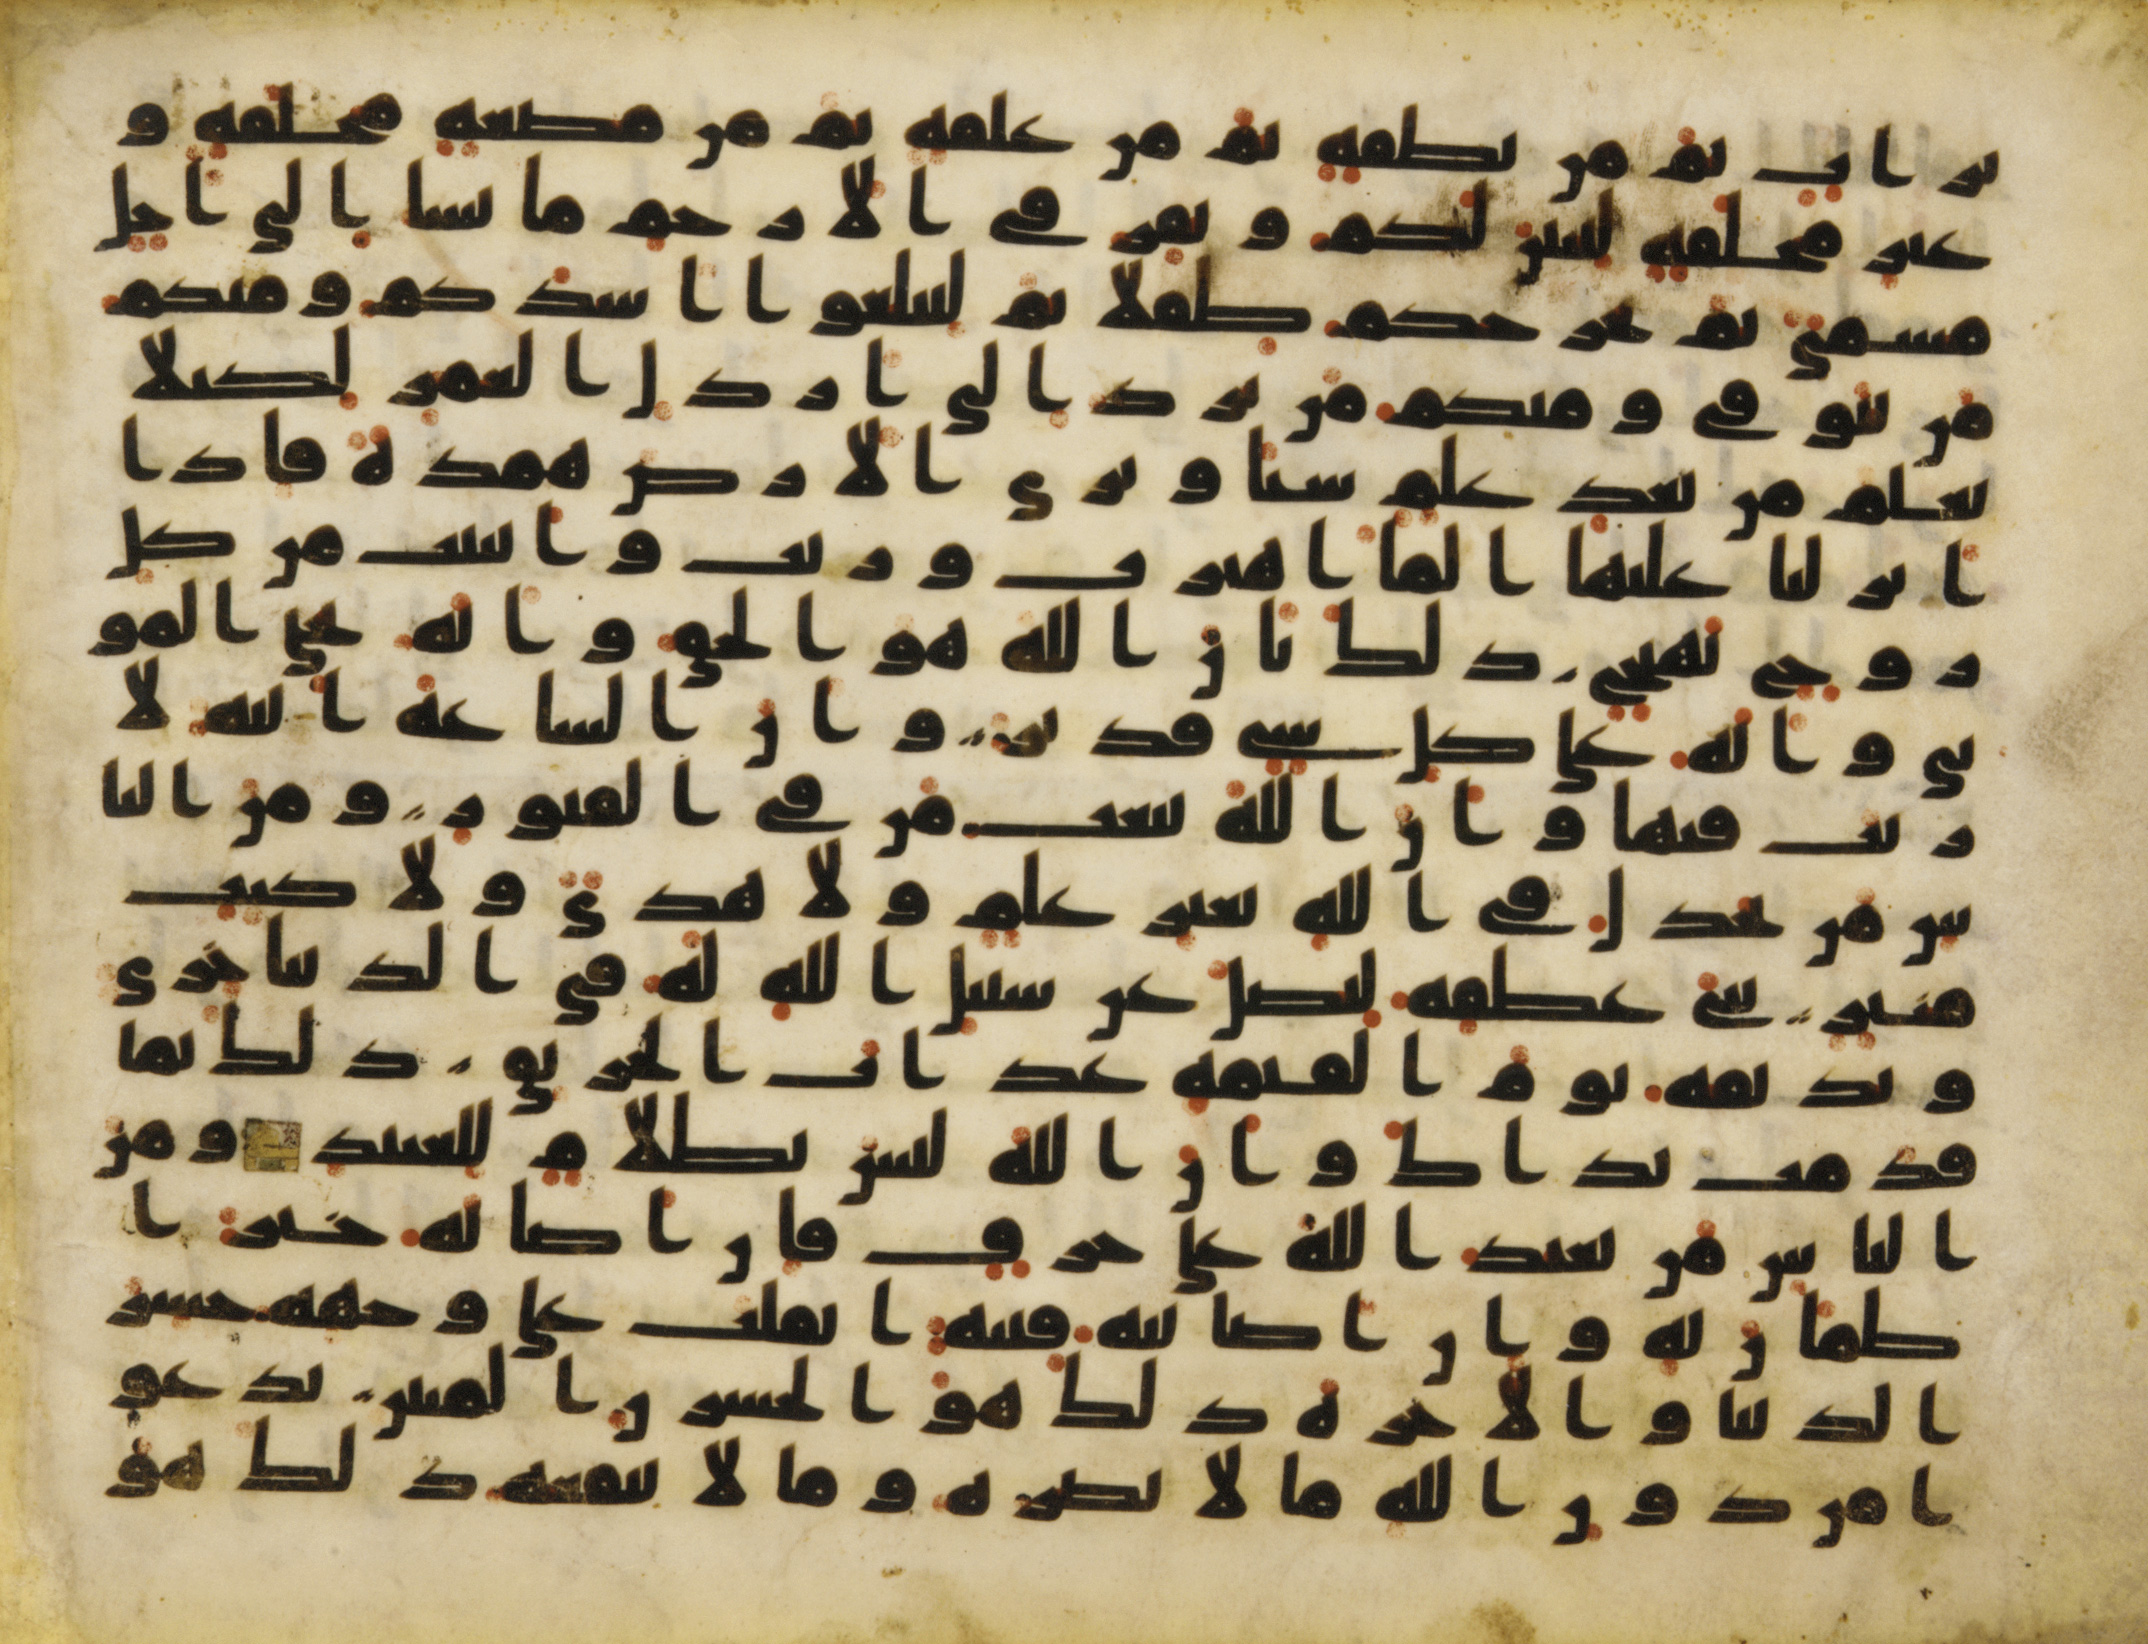 تراب ثم من نطفة ثم من علقة ثم من مضغة مخلقة و
غير مخلقة لنبين لكم ونقر في الارحم ما نشا الى اجل
مسمى ثم نخرجكم طفلا ثم لتبلغوا اشدكم ومنكم
من يتوفى ومنكم من يرد الى ارذل العمر لكيلا
يعلم من بعد علم شيا وترى الارض همدة فاذا
انزلنا عليها الما اهتزت وربت وانبتت من كل
زوج بهيج ذلك بان الله هو الحق وانه يحي المو
تى وانه على كل شي قدير وان الساعة اتية لا
ريب فيها وان الله يبعث من في القبور ومن النا
س من يجدل في الله بغير علم ولا هدى ولا كتب
منير ثني عطفه ليضل عن سبيل الله له في الدنيا خزى
ونذيقه يوم القيمة عذاب الحريق ذلك بما
قدمت يداك وان الله ليس بظلام للعبيد ومن
الناس من يعبد الله على حرف فان اصابه خير ا
طمان به وان اصابته فتنة انقلب على وجهه خسر
الدنيا والاخرة ذلك هو الخسرن المبين يدعو
ا من دون الله ما لا يضره وما لا ينفعه ذلك هو